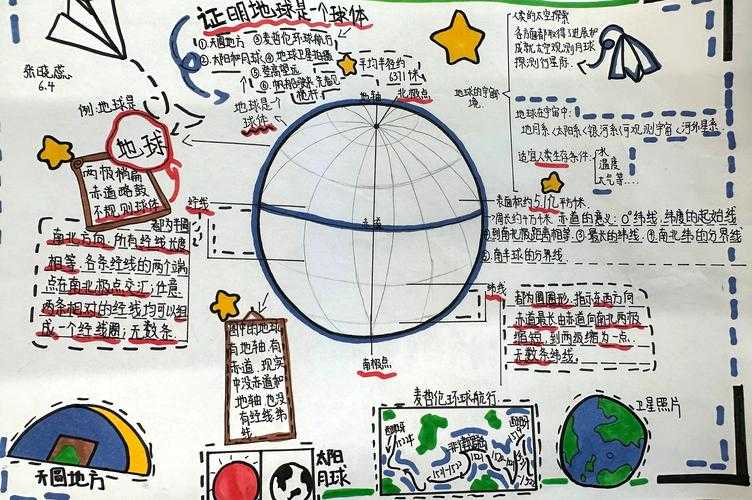 证明地球是一个球体
张晓蕊
6.4
①天圆地方 ③麦哲伦环球航行
②太阳和月球 ④地球卫星拍摄
⑤登高望远
平均半径约
6371千米
地球是一个
球体
例:地球是
地球
两极稍扁
赤道略鼓
不规则球体
地轴
北极点
赤道
南极点
人类的太空探索
各方面都取得了进展和
成就太空观测月球
探测行星际
地球的宇宙
环境
地球在宇宙中:
地月系<太阳系<银河系<可观测宇宙<河外星系
适宜人类生存条件:
水
温度
大气等...
表面积约5.1亿平方千米
周长约4万千米
赤道的意义:0°纬线,纬度的起始线
到南北极距离相等 ③最长的纬线 ④南北纬的分界线
南半球的分界线
经线
都为半圆
南北方向,所有经线长度
相等.各条经线的两个端
点在南北极点交汇,任意
两条相对的经线均可以组
成一个经线圈;无数条.
纬线
都为圆形,指示东西方向
赤道最长由赤道向南北两极
缩短,到两极缩为一点.
无数条纬线。
图中的地球
有地轴,有
赤道,现实
中没赤道和
地轴也没
有经线纬
线
天圆地方
太阳
月球
麦哲伦环球航行
卫星照片